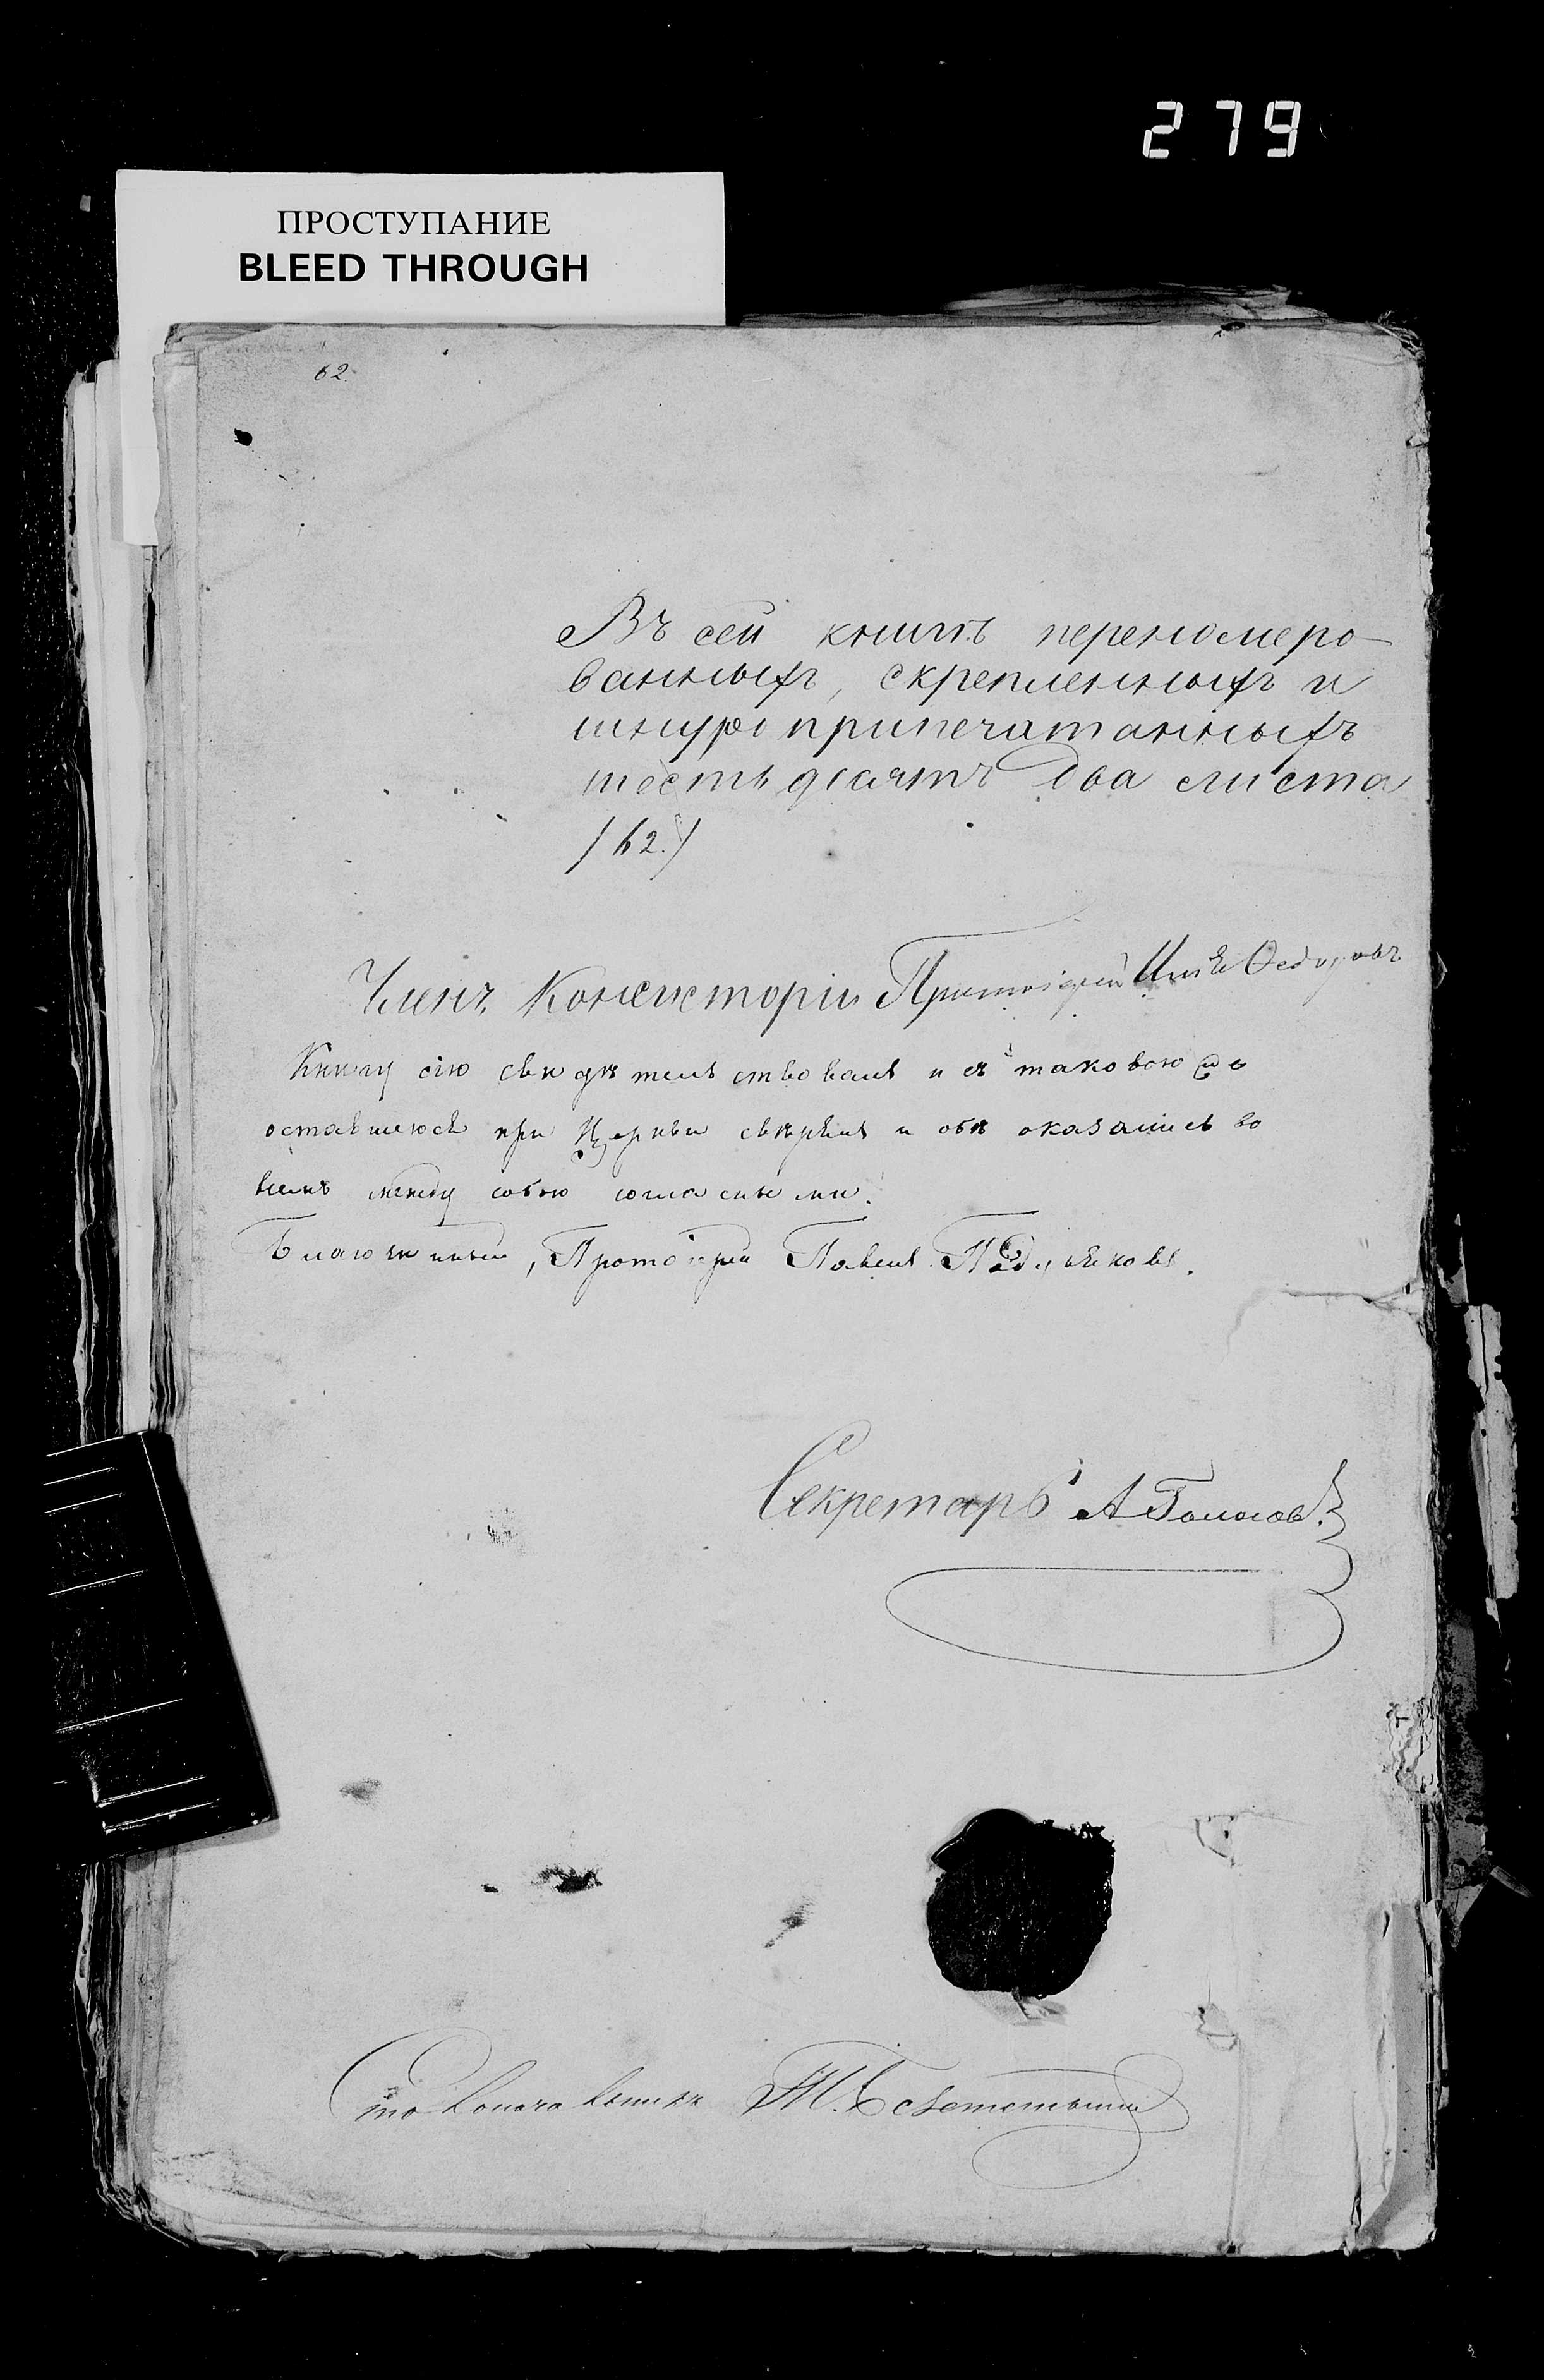 279
ПРОСТУПАНИЕ
BLEED THROUGH
62.
Въ сей книгѣ переномеро-
ванныхъ, скрепленныхъ и
шнуро припечатанныхъ
шестьдесятъ два листа
/62./
Членъ Консисторіи Протоіерей
Книгу сію свидѣтельствовалъ и съ таковою же
оставшеюся при Церкви свѣрялъ и обѣ оказались во
всемъ между собою согласными.
Благочинный, Протоіерей Павелъ
Секретарь А
Столоначальникъ